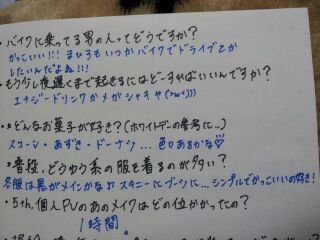 ・バイクに乗ってる男の人ってどうですか?
かっこいい!!! まひろもいつかバイクでドライブとか
したいんだよね!!!
・もう少し夜遅くまで起きるにはどーすればいいんですか?
エナジードリンクがメがシャキヤ(>ω<)))
・どんなお菓子が好き?(ホワイトデーの参考に..)
スコーン・あずき・ドーナツ...色々あるかな♡
・普段、どうゆう系の服を着るのが多い?
冬服は黒がメインかな♪ スキニーにブーツに...シンプルでかっこいいの好き!
・5th.個人PVのあのメイクはどの位かかったの?
1時間。